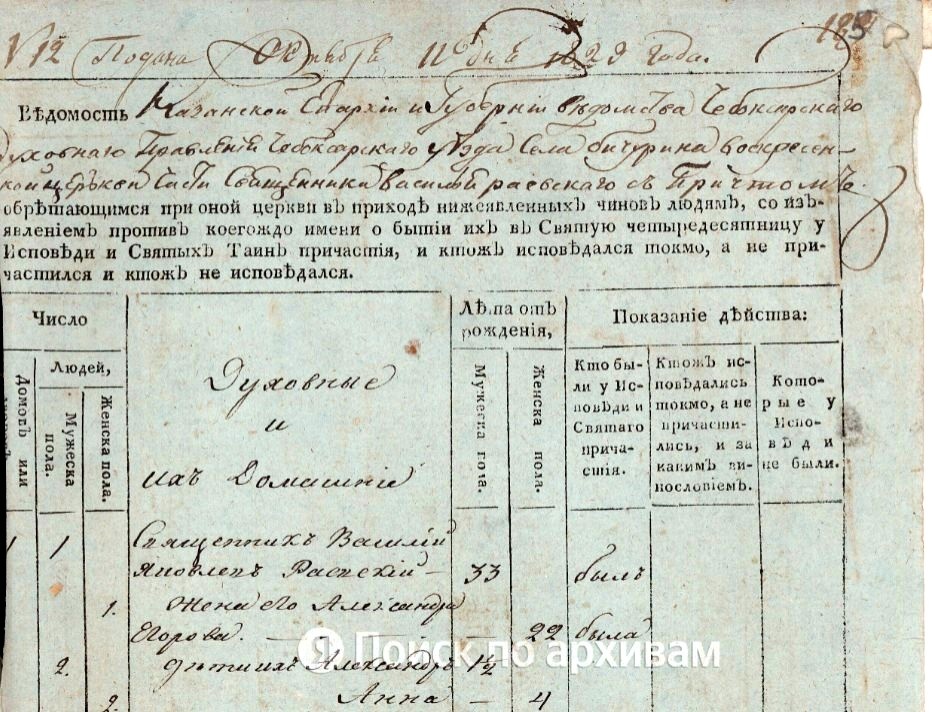 185
№ 12 Подана Октября 11 дня 1829 года.
Вѣдомость Казанской Епархіи и Губерніи Вѣдомства Чебоксарскаго
духовнаго Правленія Чебоксарскаго Уѣзда Села бичурина воскресен-
кой церькви Священника василья раевскаго съ Причтомъ
обрѣтающимся при оной церкви въ приходѣ нижеявленныхъ чиновъ людямъ, со изъ-
явленіемъ противъ коегождо имени о бытіи ихъ въ Святую четыредесятницу у
Исповѣди и Святыхъ Таинъ причастія, и ктожъ исповѣдался токмо, а не при-
частился и ктожъ не исповѣдался.
Число
Людей,
Домовъ или
Мужеска пола.
Женска пола.
Духовные
и
ихъ Домашніе
Лѣта отъ
рожденія,
Мужеска пола.
Женска пола.
Показаніе дѣйства:
Кто бы-
ли у Ис-
повѣди и
Святаго
прича-
стія.
Ктожъ ис-
повѣдались
токмо, а не
причасти-
лись, и за
какимъ ви-
нословіемъ.
Кото-
рые у
Испо-
вѣди
не были.
1 1 Священникъ Василій
Яковлевъ Раевскій — 33 былъ
1. Жена его Александра
Егорова. — 22 была
2. дѣти ихъ Александръ 1½
2. Анна — 4
Поиск по архивам